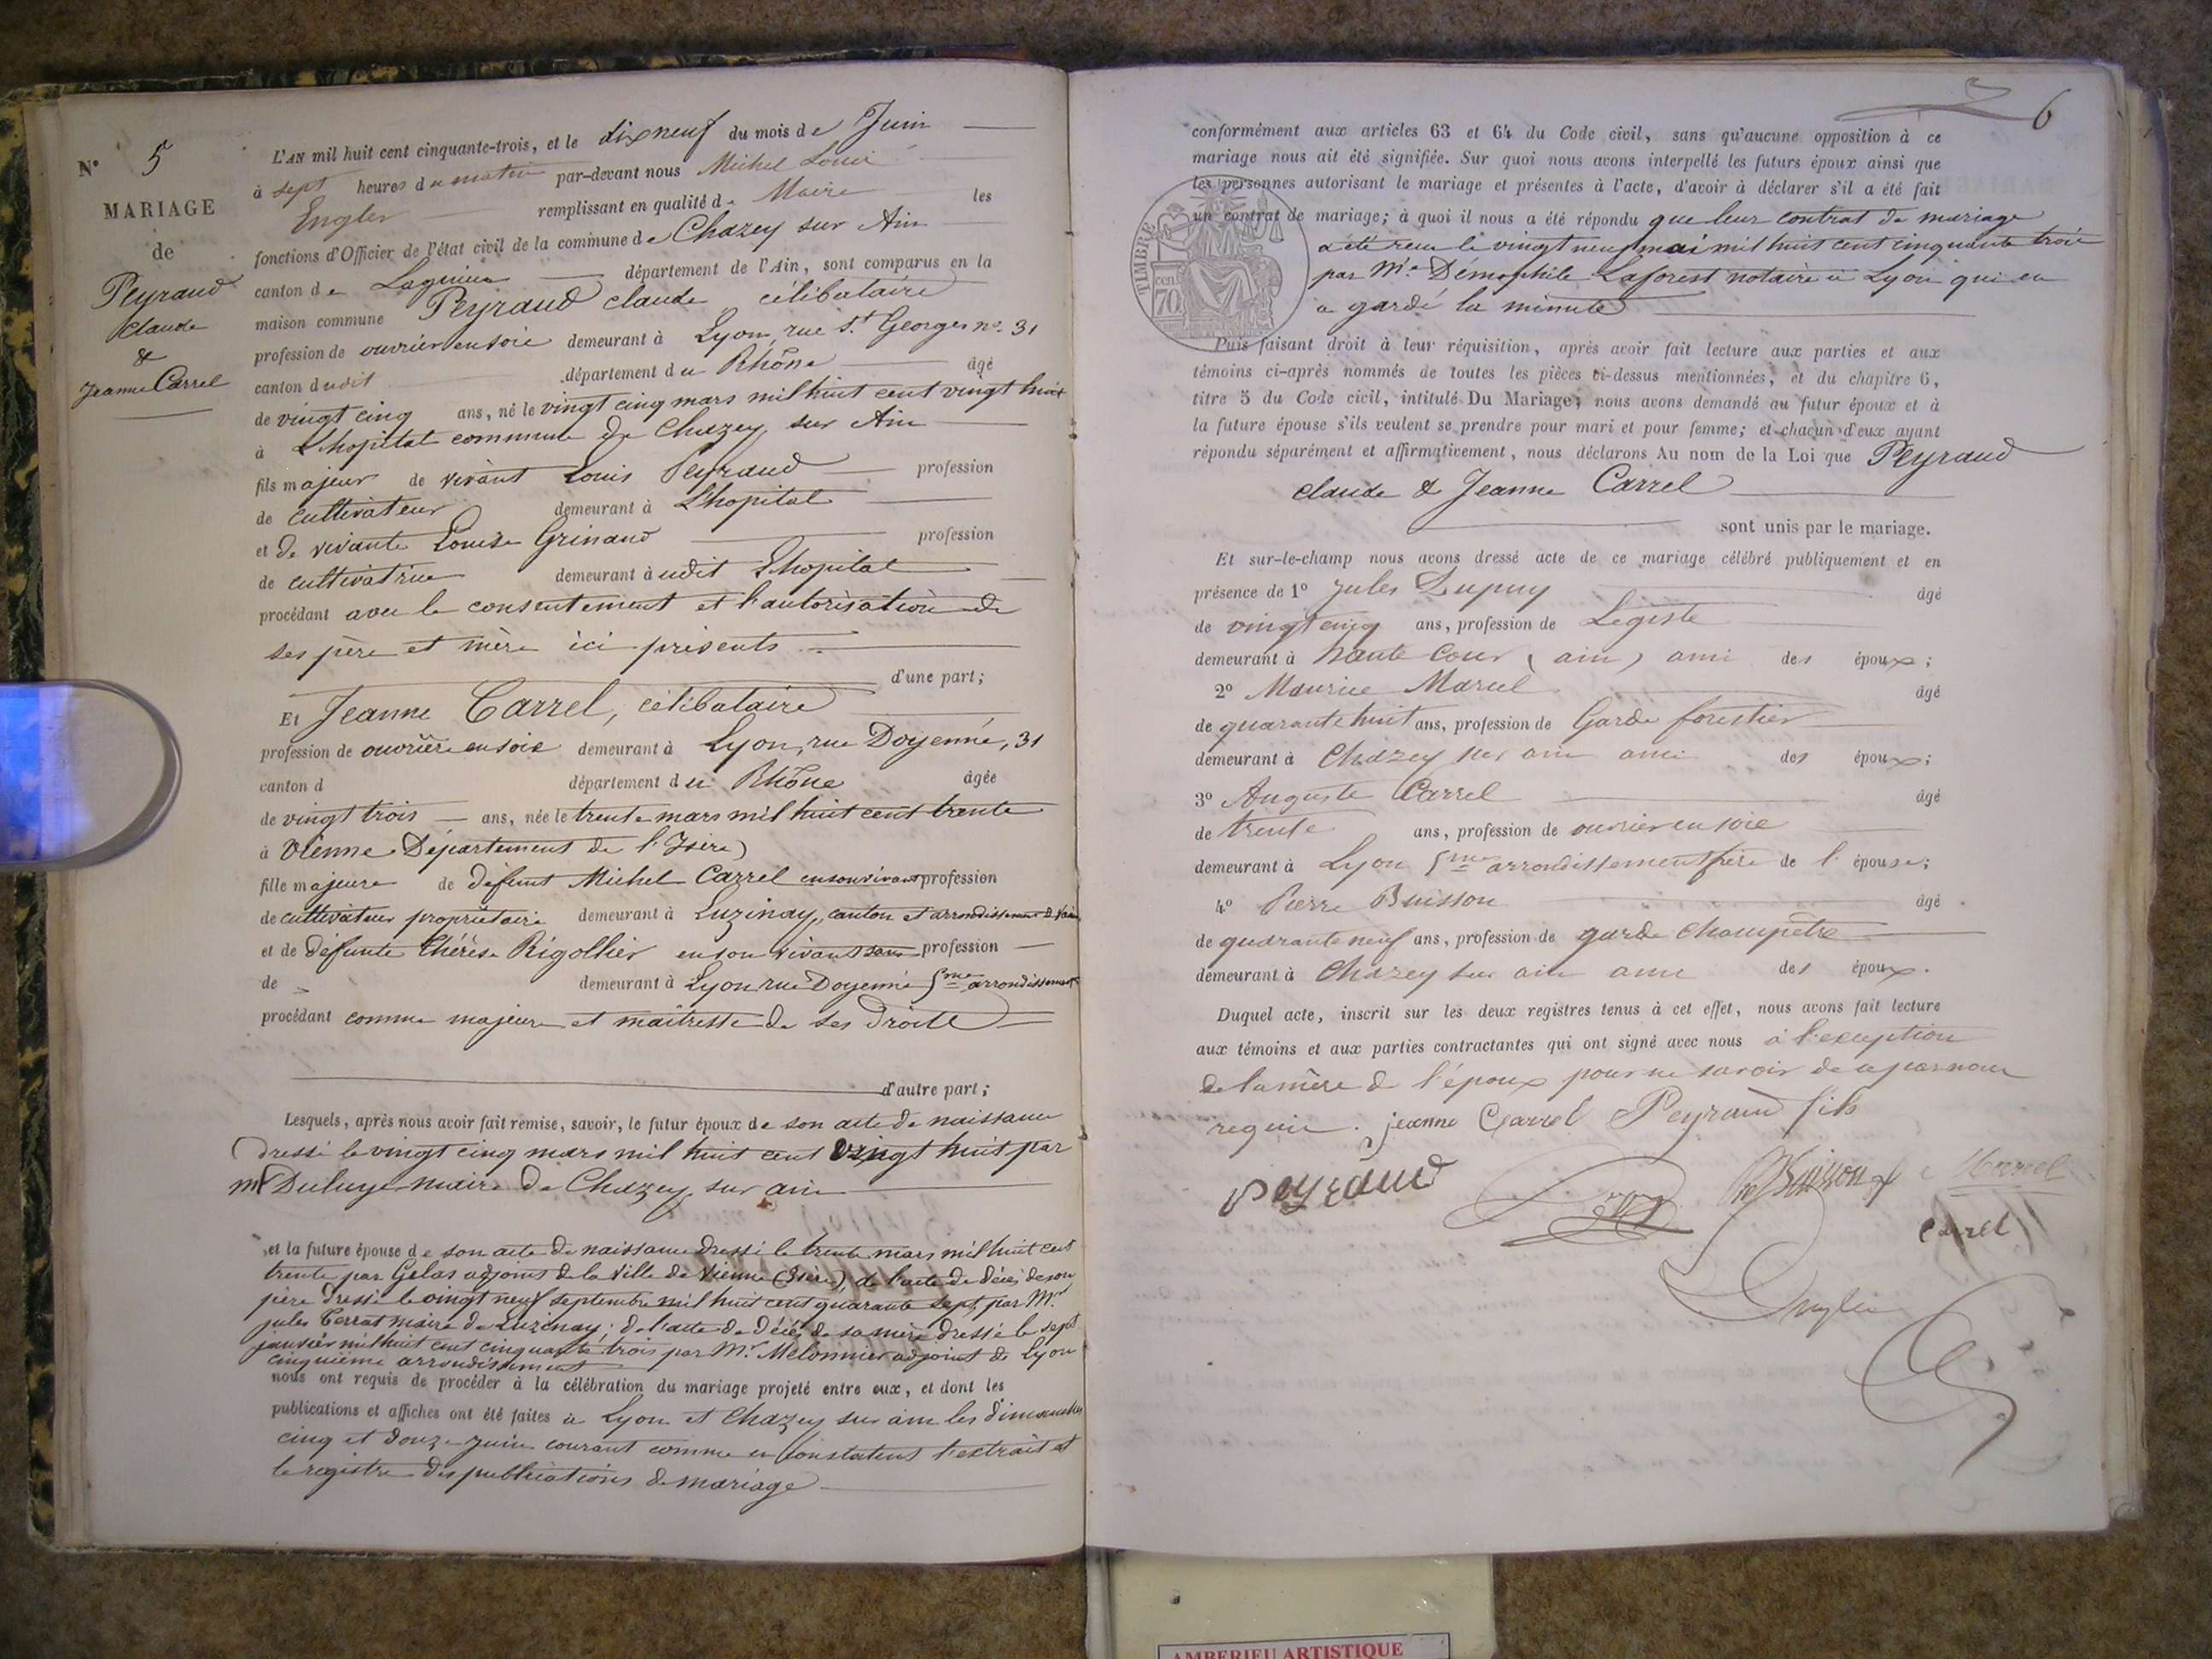 N° 5
MARIAGE
de
Peyraud
Claude
&
Jeanne Carrel
L'AN mil huit cent cinquante-trois, et le dix neuf du mois de Juin
à sept heures du matin par-devant nous Michel Louis
Engler remplissant en qualité de Maire les
fonctions d'Officier de l'état civil de la commune de Chazey sur Ain
canton de Lagnieu département de l'Ain, sont comparus en la
maison commune Peyraud Claude célibataire
profession de ouvrier en soie demeurant à Lyon, rue St Georges no. 31
canton dudit département du Rhône âgé
de vingt cinq ans, né le vingt cinq mars mil huit cent vingt huit
à L'hopital commune de Chazey sur Ain
fils majeur de vivant Louis Peyraud profession
de cultivateur demeurant à L'hopital
et de vivante Louise Grinand profession
de cultivatrice demeurant àudit L'hopital
procédant avec le consentement et l'autorisation de
ses père et mère ici présents
d'une part;
Et Jeanne Carrel, célibataire
profession de ouvrière en soie demeurant à Lyon, rue Doyenné, 31
canton d département du Rhône âgée
de vingt trois ans, née le trente mars mil huit cent trente
à Vienne Département de l'Isère)
fille majeure de défunt Michel Carrel en son vivant profession
de cultivateur propriétaire demeurant à Luzinay, canton et arrondissement de
et de défunte Thérèse Rigollier en son vivant sans profession
de demeurant à Lyon rue Doyenné 5me arrondissement
procédant comme majeure et maitresse de ses droits
d'autre part;
Lesquels, après nous avoir fait remise, savoir, le futur époux de son acte de naissance
dressé le vingt cinq mars mil huit cent vingt huit par
mr maire de Chazey sur ain
et la future épouse de son acte de naissance dressé le trente mars mil huit cent
trente par Gelas adjoint de la ville de Vienne (Isère), de l'acte de décès de son
père dressé le vingt neuf septembre mil huit cent quarante sept, par Mr.
jules Terrat maire de Luzinay; de l'acte de décès de sa mère dressé le sept
janvier mil huit cent cinquante trois par Mr. Melonnier adjoint de Lyon
cinquième arrondissement
nous ont requis de procéder à la célébration du mariage projeté entre eux, et dont les
publications et affiches ont été faites à Lyon et Chazey sur ain les dimanches
cinq et douze juin courant comme en constatent l'extrait et
le registre des publications de mariage
6
conformément aux articles 63 et 64 du Code civil, sans qu'aucune opposition à ce
mariage nous ait été signifiée. Sur quoi nous avons interpellé les futurs époux ainsi que
les personnes autorisant le mariage et présentes à l'acte, d'avoir à déclarer s'il a été fait
un contrat de mariage; à quoi il nous a été répondu que leur contrat de mariage
a été recu le vingt neuf mai mil huit cent cinquante trois
par Me Démophile Laforest notaire à Lyon qui en
a gardé la minute
TIMBRE
70
Puis faisant droit à leur réquisition, après avoir fait lecture aux parties et aux
témoins ci-après nommés de toutes les pièces ci-dessus mentionnées, et du chapitre 6,
titre 5 du Code civil, intitulé Du Mariage; nous avons demandé au futur époux et à
la future épouse s'ils veulent se prendre pour mari et pour femme; et chacun d'eux ayant
répondu séparément et affirmativement, nous déclarons Au nom de la Loi que Peyraud
claude & Jeanne Carrel
sont unis par le mariage.
Et sur-le-champ nous avons dressé acte de ce mariage célébré publiquement et en
présence de 1° Jules Dupuy âgé
de vingt cinq ans, profession de Légiste
demeurant à haute Cour (ain) ami des époux;
2° Maurice Marcel âgé
de quarante huit ans, profession de Garde forestier
demeurant à Chazey sur ain ami des époux;
3° Auguste Carrel âgé
de trente ans, profession de ouvrier en soie
demeurant à Lyon 5me arrondissement frère de l' épouse;
4° Pierre Buisson âgé
de quarante neuf ans, profession de garde champêtre
demeurant à Chazey sur ain ami des époux.
Duquel acte, inscrit sur les deux registres tenus à cet effet, nous avons fait lecture
aux témoins et aux parties contractantes qui ont signé avec nous à l'exception
de la mère de l'époux pour ne savoir de ce par nous
requis. jeanne Carrel Peyraud fils
peyraud Buisson Marcel
carrel
Engler
AMBERIEU ARTISTIQUE